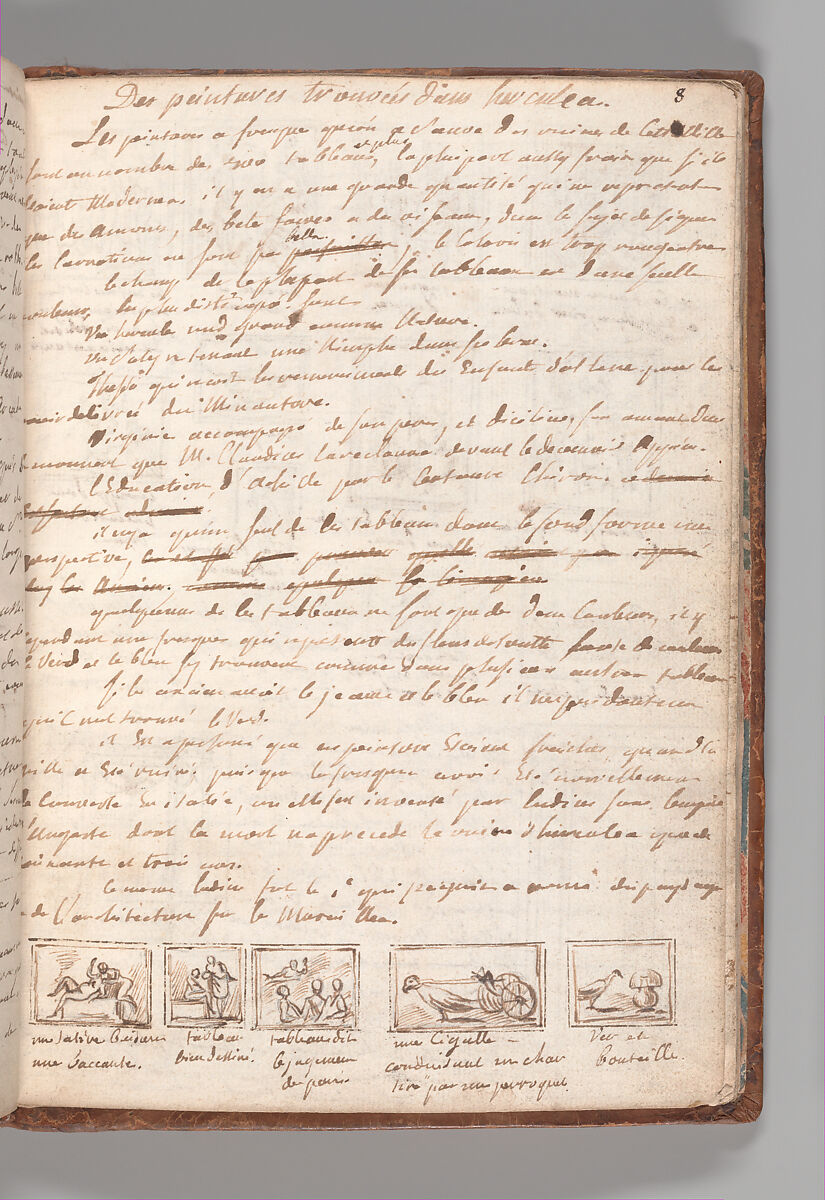 8
Des peintures trouvées dans herculea.
Les peintures a fresque qu'on a sauvé des ruines de cette ville
sont au nombre de tableaux, et plus, la pluspart aussy frais que s'ils
etoient Modernes. il y en a une grande quantité qui ne representent
que des amours, des bete fauves et des oiseaux, dans le sujet de figures
les carnations ne sont pas belle, le coloris est trop rougeatre
le champ de la plupart de ses tableaux est d'une seulle
couleur, les plus distingé sont
Un hercule nud grand comme Nature.
un Satyr tenant une Nimphe dans ses bras.
Thesé qui reçoit les remerciment des Enfants d'attene pour les
avoir delivré du Minautore.
Virginie accompagné de son pere, et Icilius, son amant dans
le moment que M. Claudius la reclame devant le decemvir Appius.
l'Education d'Achile par le Centaure Chiron.
il n'y a qu'un seul de ces tableaux dont le fond forme une
perspective,
quelqu'uns de ces tableaux ne sont que de deux couleurs, il y
a cependant une fresque qui represente des fleurs de toutte sorte de couleurs
le Verd et le bleu s'y trouvent comme dans plusieurs autres tableaux
Si les anciens avoit le jeaune et le bleu il n'est pas douteux
qu'il eut trouvé le Verd.
il Est a presumé que ces peintures Etoient fraiches quand la
ville a Eté ruiné puisque la fresque avoit Eté nouvellement
decouverte en italie, car elle fut inventé par ludius sous l'empire
d'Auguste dont la mort na precede la ruine d'herculea que de
soixante et trois ans.
le meme ludius fut le 1er qui peignit a rome des paysages
et de l'architecture sur les Murailles.
un satire baisant
une Baccante.
tableau
bien dessiné.
tableau dit
le jugement
de paris.
une Cigalle
conduisant un char
tiré par un perroquet.
Ver et
bouteille.